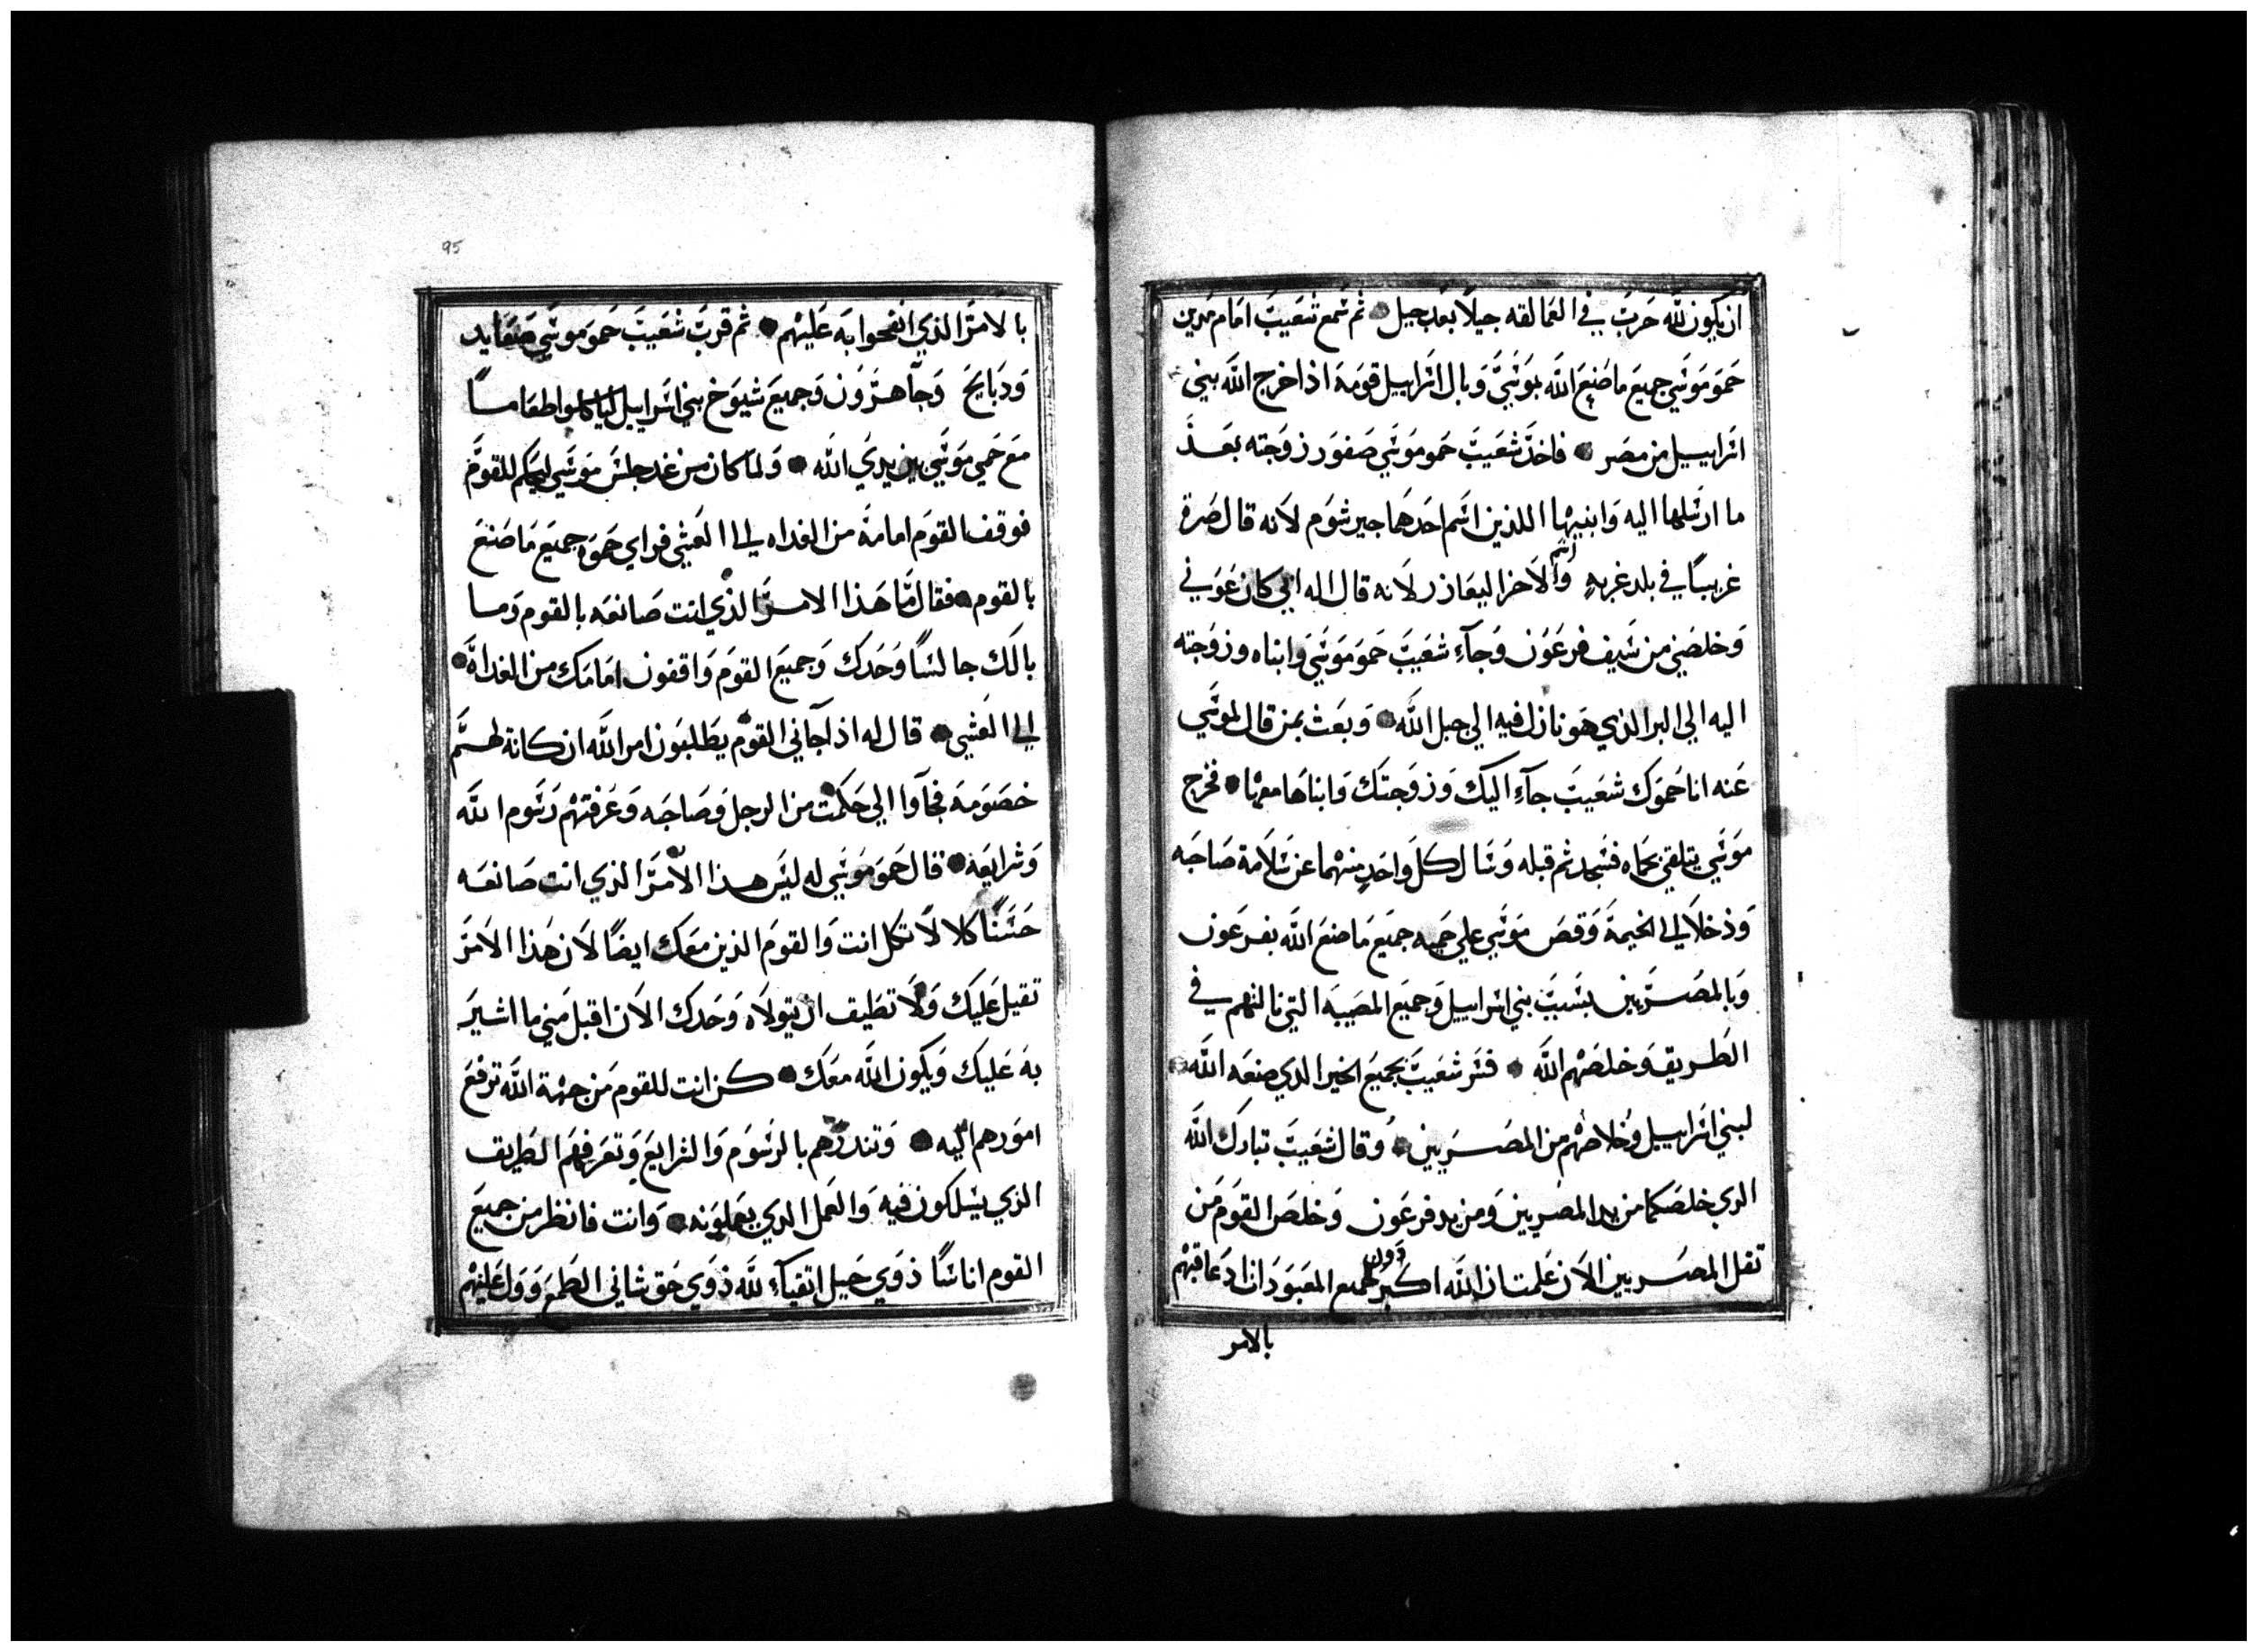 ان يكون لله حرب في العمالقه جيلاً بعد جيل ثم سمع شعيب امام مدين
حمو موسي جميع ما صنع الله بموسي وبال اسراييل قومه اذا خرج الله بني
اسراييل من مصر فاخذ شعيب حمو موسي صفورَ زوجته بعد
ما ارسلها اليه وابنيها اللذين اسم احدهما جيرشوم لانه قال صرة
غريباً في بلد غربه واسم الاخر اليعازر لانه قال اله ابي كان عوني
وخلصني من سيف فرعون وجآء شعيب حمو موسي وابناه وزوجته
اليه الي البر الذي هو نازل فيه الي جبل الله وبعث بمن قال لموسي
عنه انا حموك شعيب جآء اليك وزوجتك وابناها معها فخرج
موسي يتلقي حماه فسجد ثم قبله وسال كل واحد منهما عن سلامة صاحبه
وذخلا الي الخيمة وقص موسي علي حميه جميع ما صنع الله بفرعون
وبالمصريين بسبب بني اسراييل وجميع المصيبه التي نالتهم في
الطريق وخلصهم الله فسر شعيب بجميع الخير الدي صنعه الله
لبني اسراييل وخلاصهم من المصريين وقال شعيب تبارك الله
الدي خلصكما من يد المصريين ومن يد فرعون وخلص القوم من
تقل المصريين الان علمت ان الله اكبر دون جميع المعبودان اد عاقبهم
بالامر
95
بالامر الذي اتقحوا به عليهم ثم قرب شعيب حمو موسي صعايد
ودبايح وجآ هرون وجميع شيوخ بني اسراييل لياكلوا طعاما
مع حمي موسي بين يدي الله ولما كان من غد جلس موسي ليحكم للقوم
فوقف القوم امامه من الغداه الي العشي فراي حموه جميع ما صنع
بالقوم فقال ما هذا الامر الذي انت صانعه بالقوم وما
بالك جالسًا وحدك وجميع القوم واقفون امامك من الغداة
الي العشي قال له اذا جآني القوم يطلبون امر الله ان كانة لهم
خصومه فجآوا الي حكمت من الرجل وصاحبه وعرفتهم رسوم الله
وشرايعه قال حمو موسي له ليس هذا الامر الذي انت صانعه
حسنًا كلا لا تكل انت والقوم الذين معك ايضًا لان هذا الامر
تقيل عليك ولا تطيف ان يتولاه وحدك الان اقبل مني ما اشير
به عليك ويكون الله معك كن انت للقوم من جهة الله ترفع
امورهم اليه وتندرهم بالرسوم والشرايع وتعرفهم الطريق
الذي يسلكون فيه والعمل الدي يعملونه وانت فانظر من جميع
القوم اناسًا ذوي حيل اتقيآء لله ذوي حق شاني الطمع وول عليهم